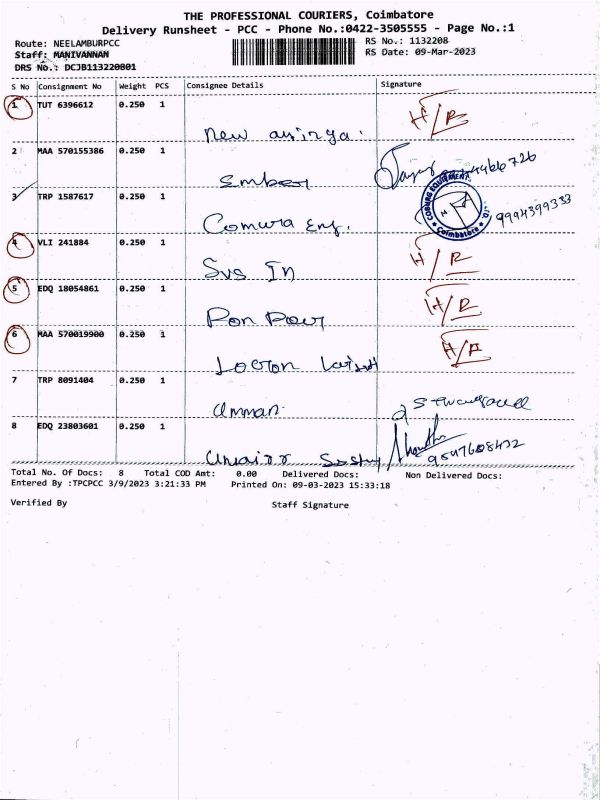 THE PROFESSIONAL COURIERS, Coimbatore
Delivery Runsheet - PCC - Phone No.:0422-3505555 - Page No.:1
Route: NEELAMBURPCC RS No.: 1132208
Staff: MANIVANNAN RS Date: 09-Mar-2023
DRS No.: DCJB113220801
S No Consignment No Weight PCS Consignee Details Signature
1 TUT 6396612 0.250 1 H/R
New
2 MAA 570155386 0.250 1
3 TRP 1587617 0.250 1 COBURG EQUIPMENT Coimbatore 9994399333
Eng.
4 VLI 241884 0.250 1 H/R
Svs In
5 EDQ 18054861 0.250 1 H/R
Pon
6 MAA 570019900 0.250 1 H/R
7 TRP 8091404 0.250 1
Amman
8 EDQ 23803601 0.250 1
Total No. Of Docs: 8 Total COD Amt: 0.00 Delivered Docs: Non Delivered Docs:
Entered By :TPCPCC 3/9/2023 3:21:33 PM Printed On: 09-03-2023 15:33:18
Verified By Staff Signature